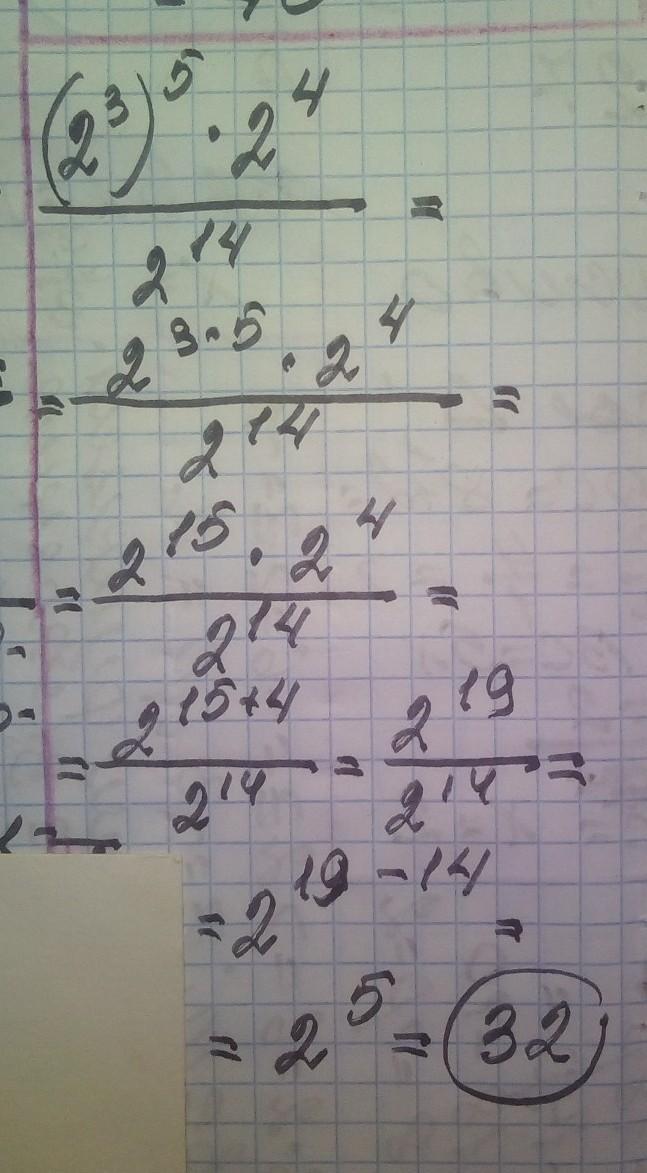 (2³)⁵ · 2⁴
/ 2¹⁴ =
= 2³·⁵ · 2⁴
/ 2¹⁴ =
= 2¹⁵ · 2⁴
/ 2¹⁴ =
= 2¹⁵⁺⁴ / 2¹⁴ = 2¹⁹ / 2¹⁴ =
= 2¹⁹⁻¹⁴ =
= 2⁵ = 32